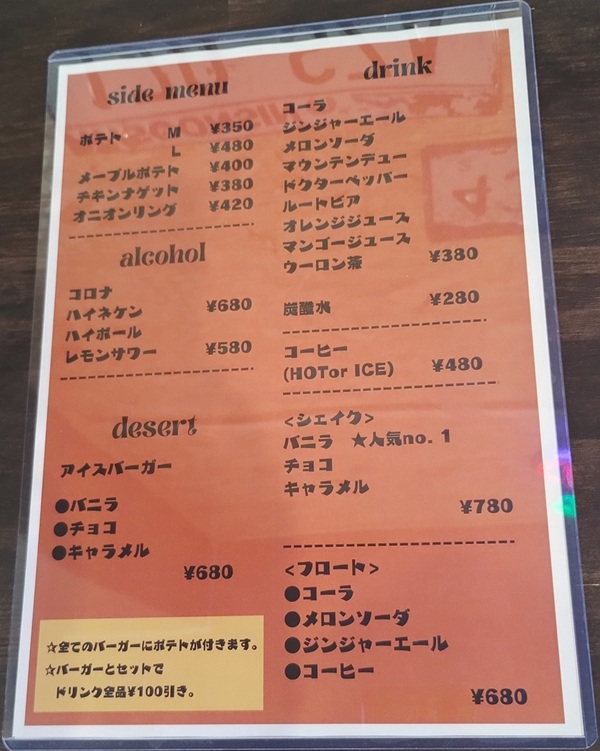 side menu
ポテト M ¥350
L ¥480
メープルポテト ¥400
チキンナゲット ¥380
オニオンリング ¥420
alcohol
コロナ
ハイネケン ¥680
ハイボール
レモンサワー ¥580
desert
アイスバーガー
●バニラ
●チョコ
●キャラメル
¥680
☆全てのバーガーにポテトが付きます。
☆バーガーとセットで
ドリンク全品¥100引き。
drink
コーラ
ジンジャーエール
メロンソーダ
マウンテンデュー
ドクターペッパー
ルートビア
オレンジジュース
マンゴージュース
ウーロン茶 ¥380
炭酸水 ¥280
コーヒー
(HOTor ICE) ¥480
<シェイク>
バニラ ★人気no. 1
チョコ
キャラメル
¥780
<フロート>
●コーラ
●メロンソーダ
●ジンジャーエール
●コーヒー
¥680